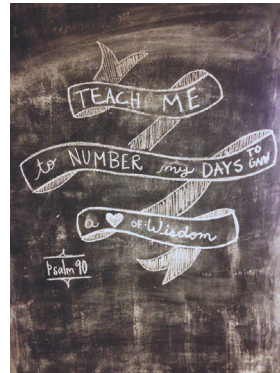 TEACH ME
to NUMBER my DAYS TO GAIN
a ♥ of Wisdom
Psalm 90